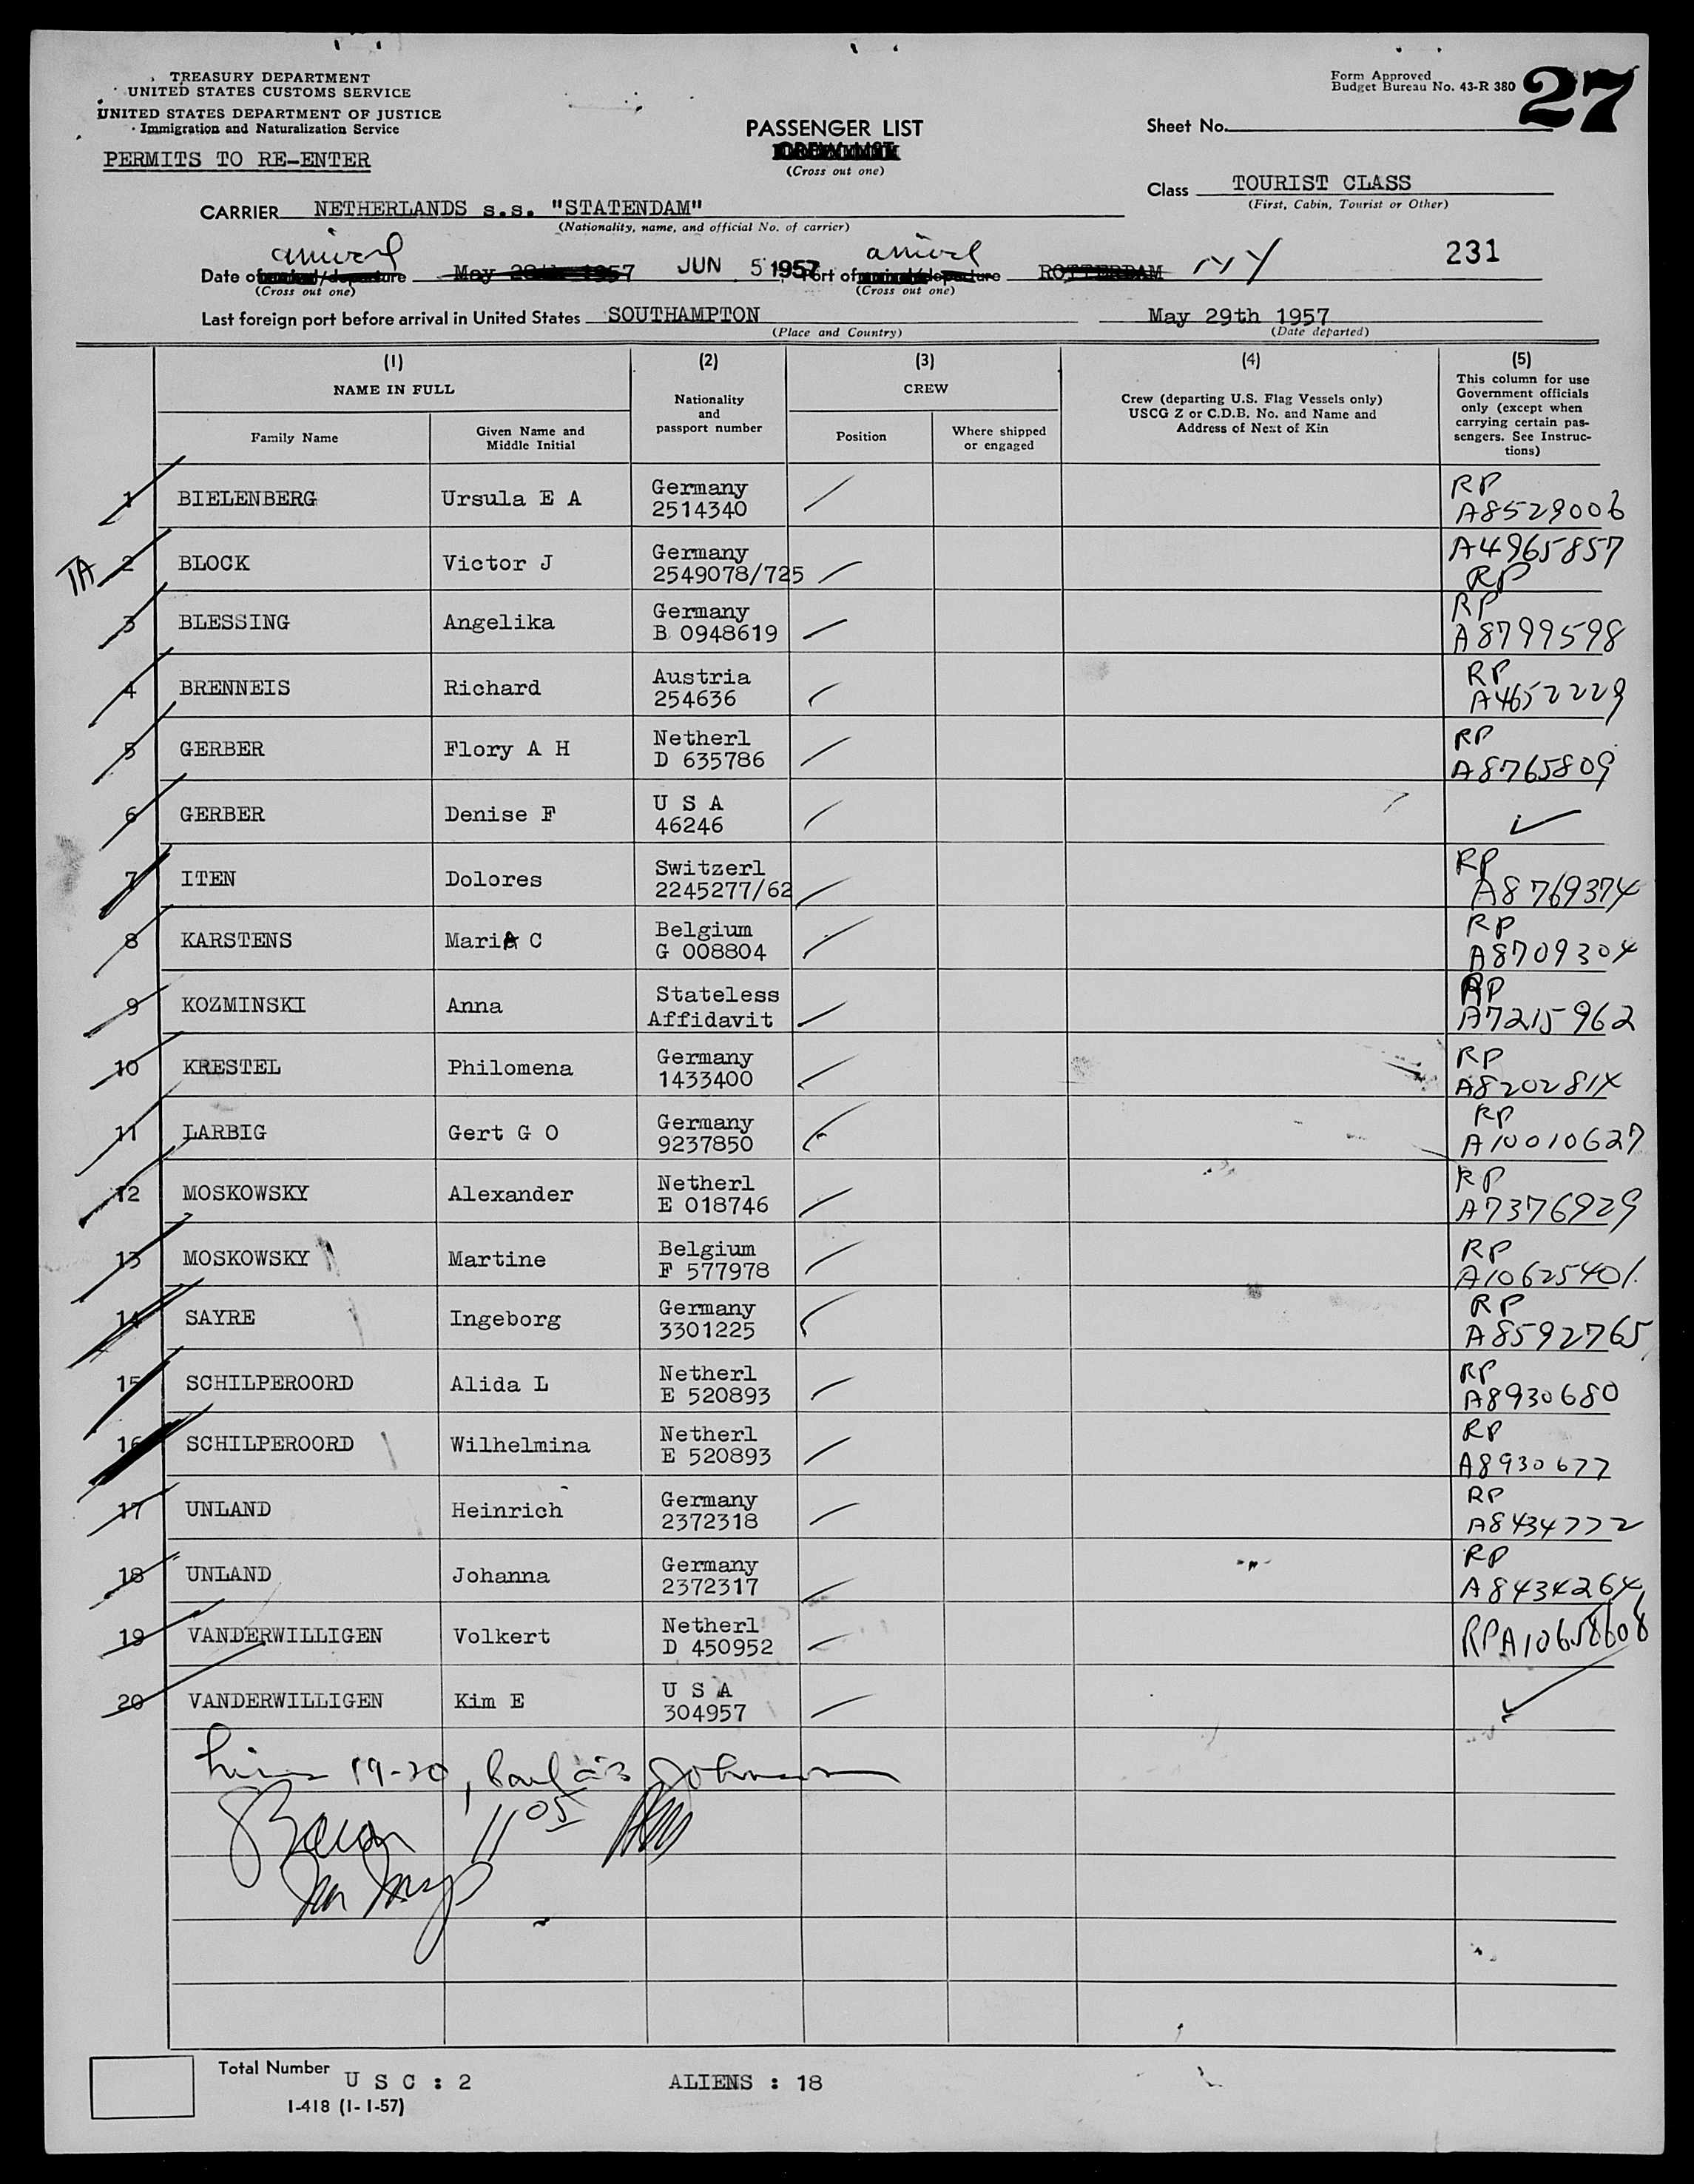 TREASURY DEPARTMENT
UNITED STATES CUSTOMS SERVICE
UNITED STATES DEPARTMENT OF JUSTICE
Immigration and Naturalization Service
PERMITS TO RE-ENTER
Form Approved
Budget Bureau No. 43-R 380
27
PASSENGER LIST
CREW LIST
(Cross out one)
Sheet No.
Class TOURIST CLASS
(First, Cabin, Tourist or Other)
CARRIER NETHERLANDS s.s. "STATENDAM"
(Nationality, name, and official No. of carrier)
arrival arrival
Date of arrival/departure May 28th 1957 JUN 5 1957, Port of arrival/departure ROTTERDAM NY 231
(Cross out one) (Cross out one)
Last foreign port before arrival in United States SOUTHAMPTON May 29th 1957
(Place and Country) (Date departed)
(1) (2) (3) (4) (5)
NAME IN FULL
Family Name
Given Name and
Middle Initial
Nationality
and
passport number
CREW
Position
Where shipped
or engaged
Crew (departing U.S. Flag Vessels only)
USCG Z or C.D.B. No. and Name and
Address of Next of Kin
This column for use
Government officials
only (except when
carrying certain pas-
sengers. See Instruc-
tions)
1 BIELENBERG Ursula E A Germany 2514340 RP A8529006
TA 2 BLOCK Victor J Germany 2549078/725 A4965857 RP
3 BLESSING Angelika Germany B 0948619 RP A8799598
4 BRENNEIS Richard Austria 254636 RP A4652229
5 GERBER Flory A H Netherl D 635786 RP A8765809
6 GERBER Denise F U S A 46246
7 ITEN Dolores Switzerl 2245277/62 RP A8769374
8 KARSTENS Maria C Belgium G 008804 RP A8709304
9 KOZMINSKI Anna Stateless Affidavit RP A7215962
10 KRESTEL Philomena Germany 1433400 RP A8202814
11 LARBIG Gert G O Germany 9237850 RP A10010627
12 MOSKOWSKY Alexander Netherl E 018746 RP A7376929
13 MOSKOWSKY Martine Belgium F 577978 RP A10625401
14 SAYRE Ingeborg Germany 3301225 RP A8592765
15 SCHILPEROORD Alida L Netherl E 520893 RP A8930680
16 SCHILPEROORD Wilhelmina Netherl E 520893 RP A8930677
17 UNLAND Heinrich Germany 2372318 RP A8434772
18 UNLAND Johanna Germany 2372317 RP A8434264
19 VANDERWILLIGEN Volkert Netherl D 450952 RP A10658608
20 VANDERWILLIGEN Kim E U S A 304957
19-20, Johnson
Bacon 11 05
Total Number U S C : 2 ALIENS : 18
I-418 (1-1-57)